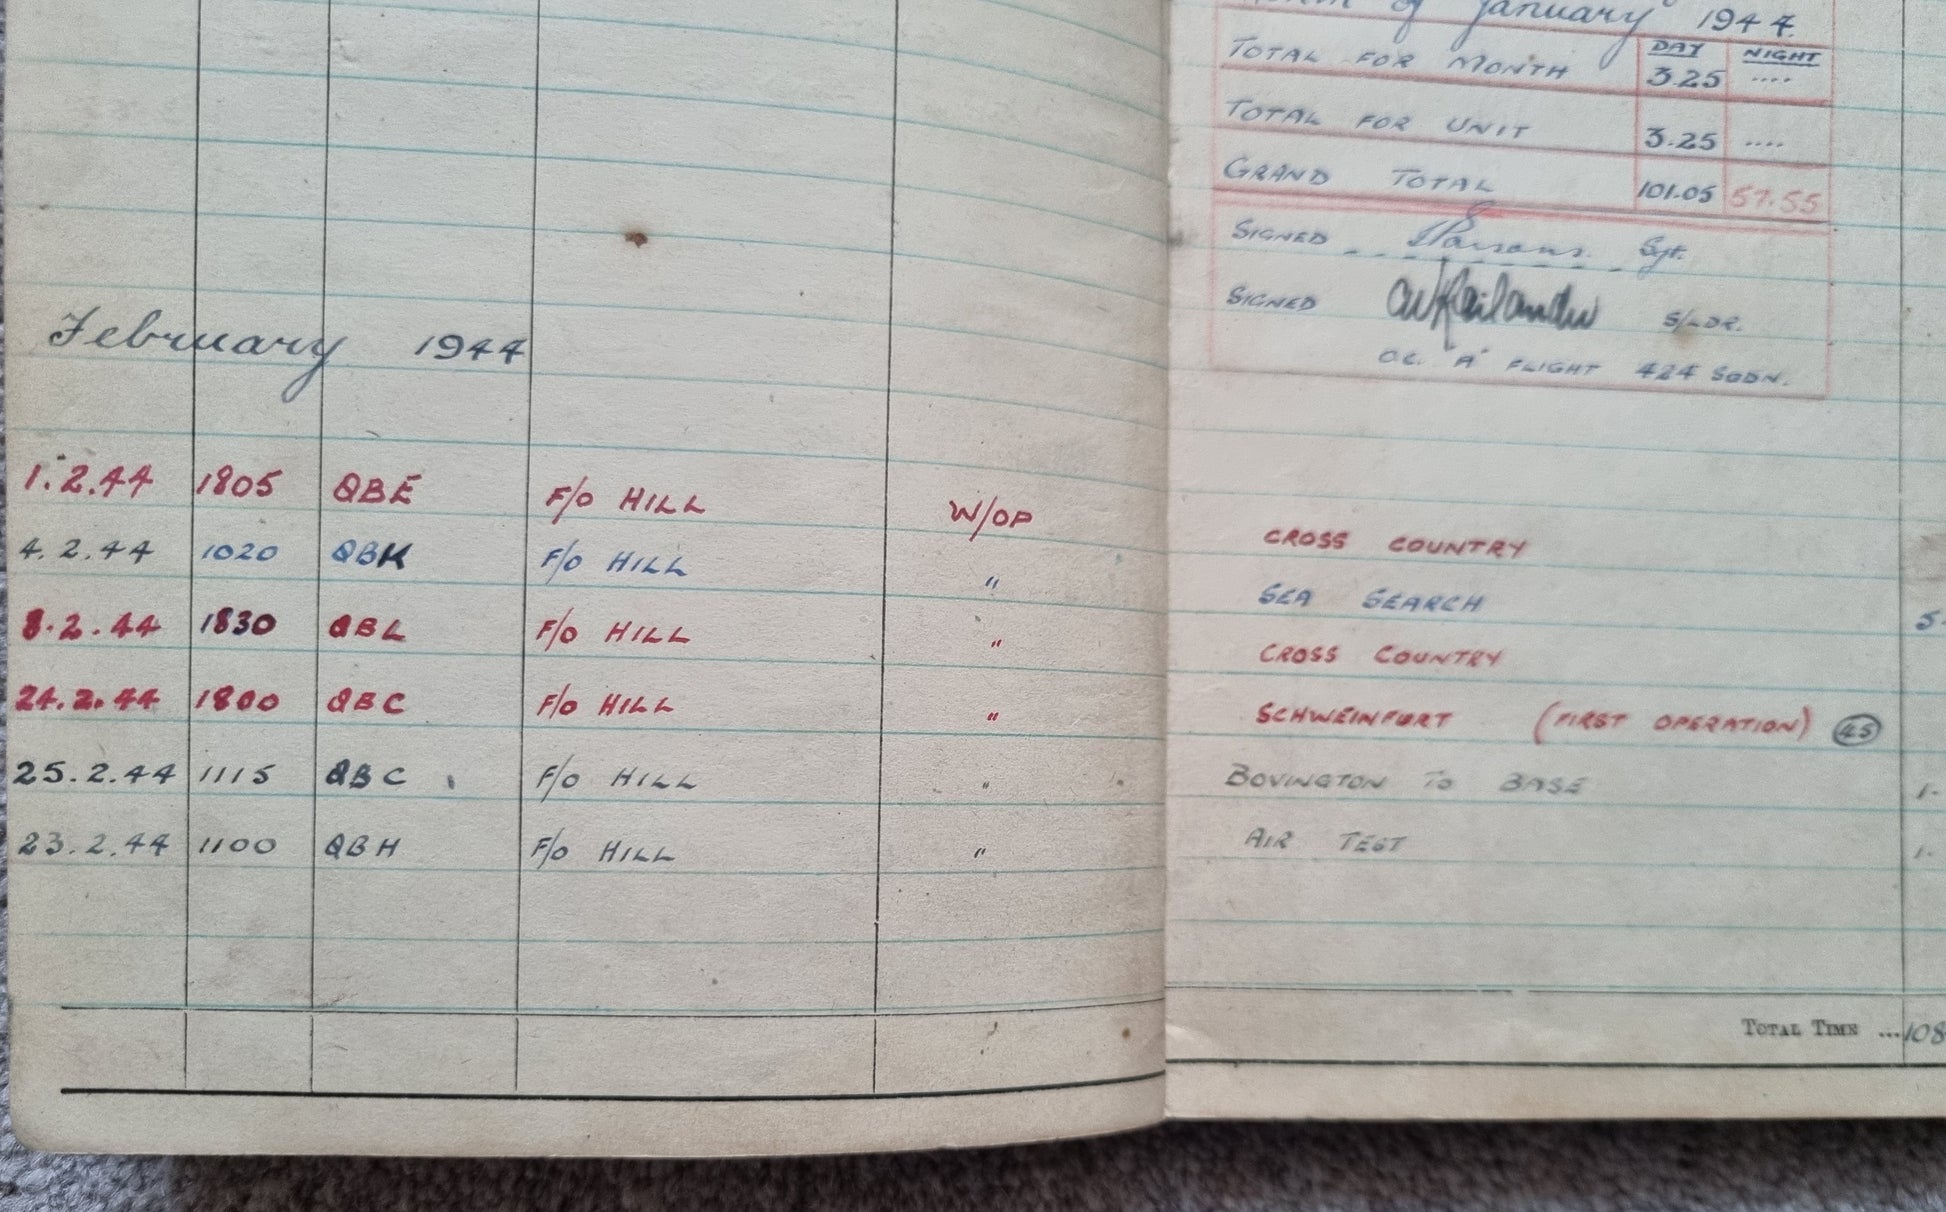 of January 1944.
DAY NIGHT
TOTAL FOR MONTH 3.25 ....
TOTAL FOR UNIT 3.25 ....
GRAND TOTAL 101.05 57.55
SIGNED Parsons. Sgt.
SIGNED S/LDR.
O.C. "A" FLIGHT 424 SQDN.
February 1944
1.2.44 1805 QBE F/O HILL W/OP CROSS COUNTRY
4.2.44 1020 QBK F/O HILL " SEA SEARCH 5.
8.2.44 1830 QBL F/O HILL " CROSS COUNTRY
24.2.44 1800 QBC F/O HILL " SCHWEINFURT (FIRST OPERATION) 45
25.2.44 1115 QBC F/O HILL " BOVINGTON TO BASE 1.
23.2.44 1100 QBH F/O HILL " AIR TEST 1.
TOTAL TIME ... 108